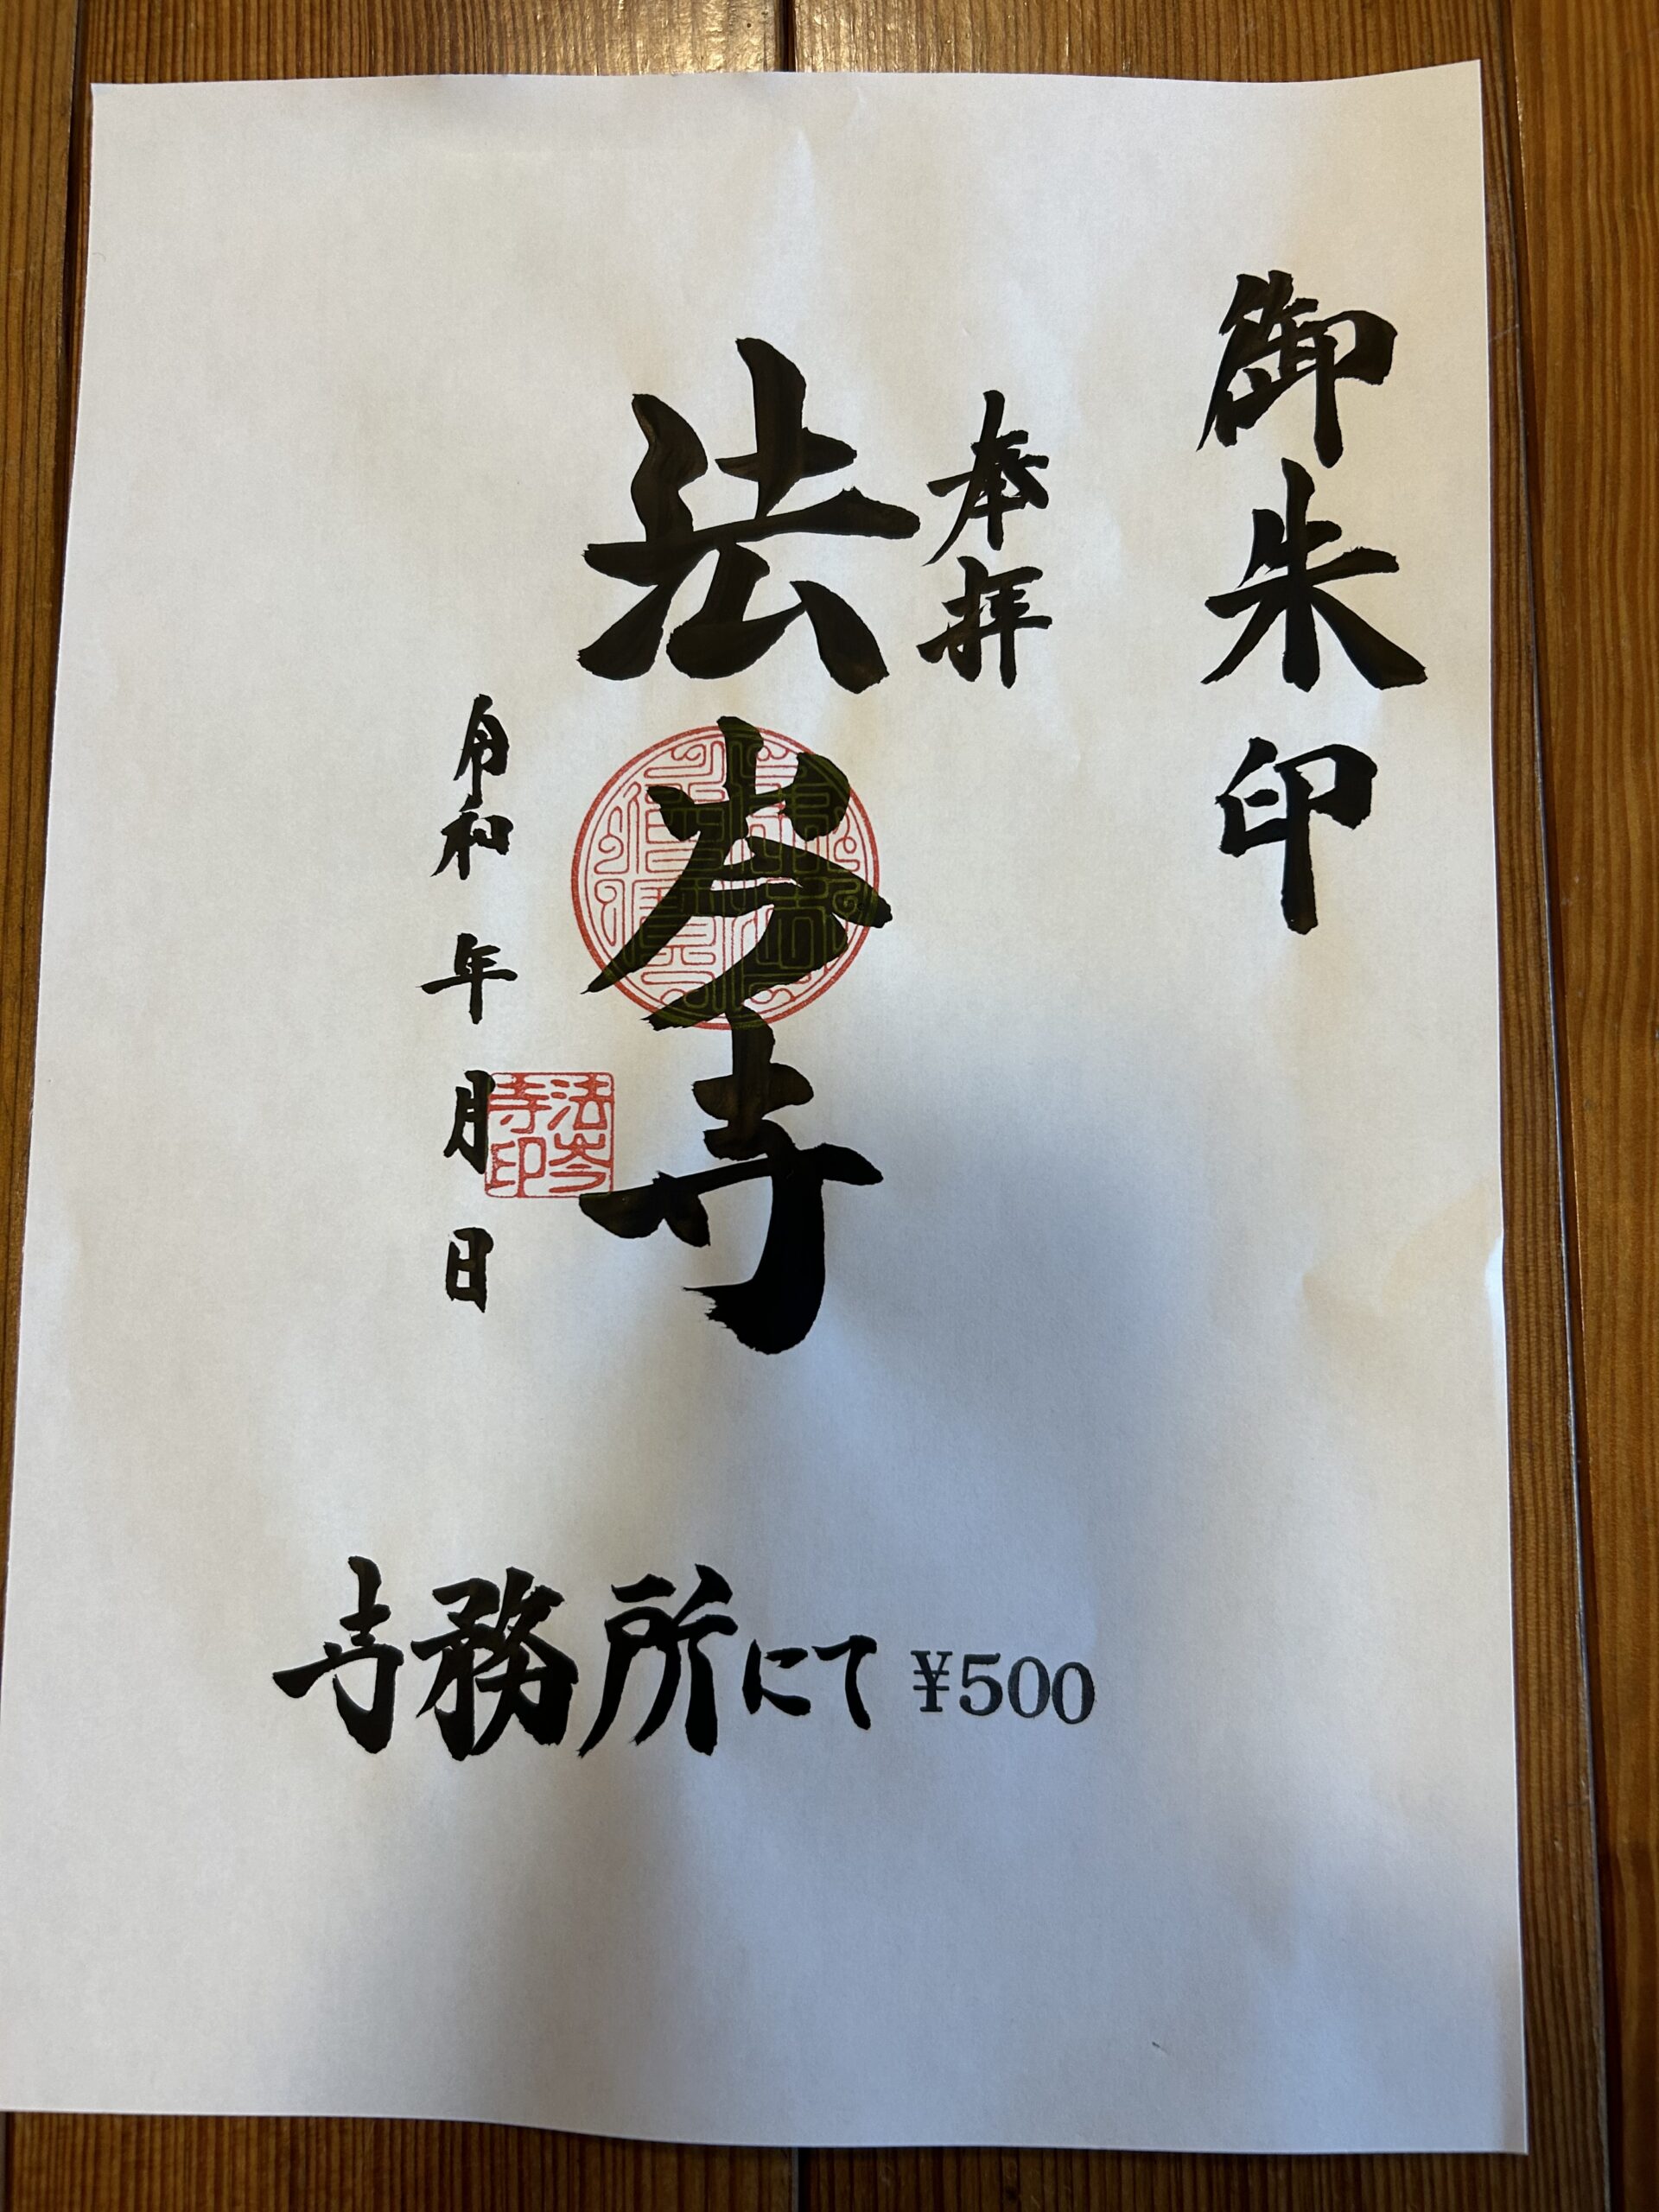 御朱印
奉拝
法岑寺
令和 年 月 日
法岑
寺印
寺務所にて ¥500